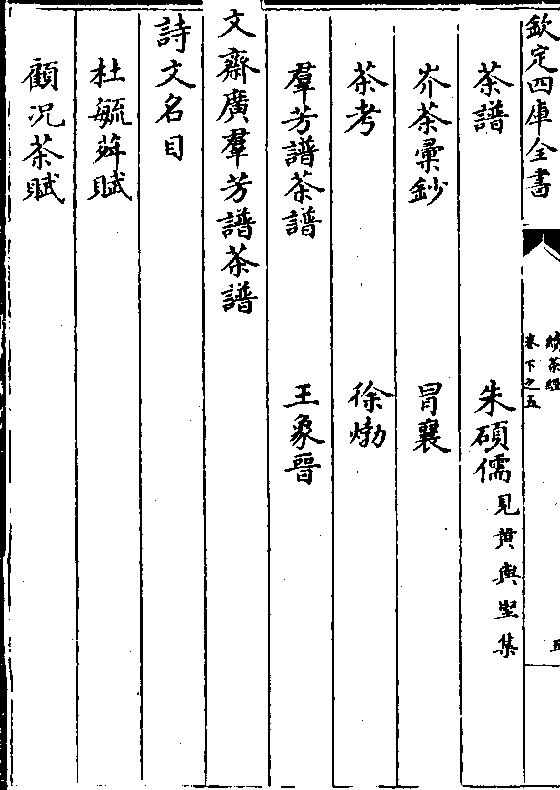 欽定四庫全書
續茶經
卷下之五
五
茶譜 朱碩儒見黄輿堅集
岕茶彙鈔 冒襄
茶考 徐𤊹
羣芳譜茶譜 王象晉
文齋廣羣芳譜茶譜
詩文名目
杜毓荈賦
顧况茶賦